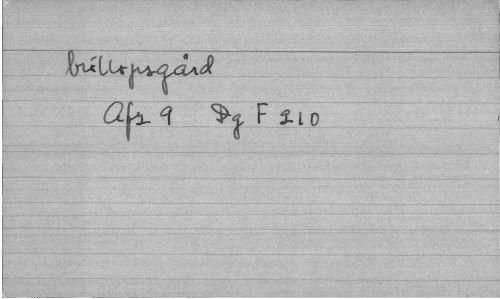 bröllopsgård
Afz 9 Dg F 210